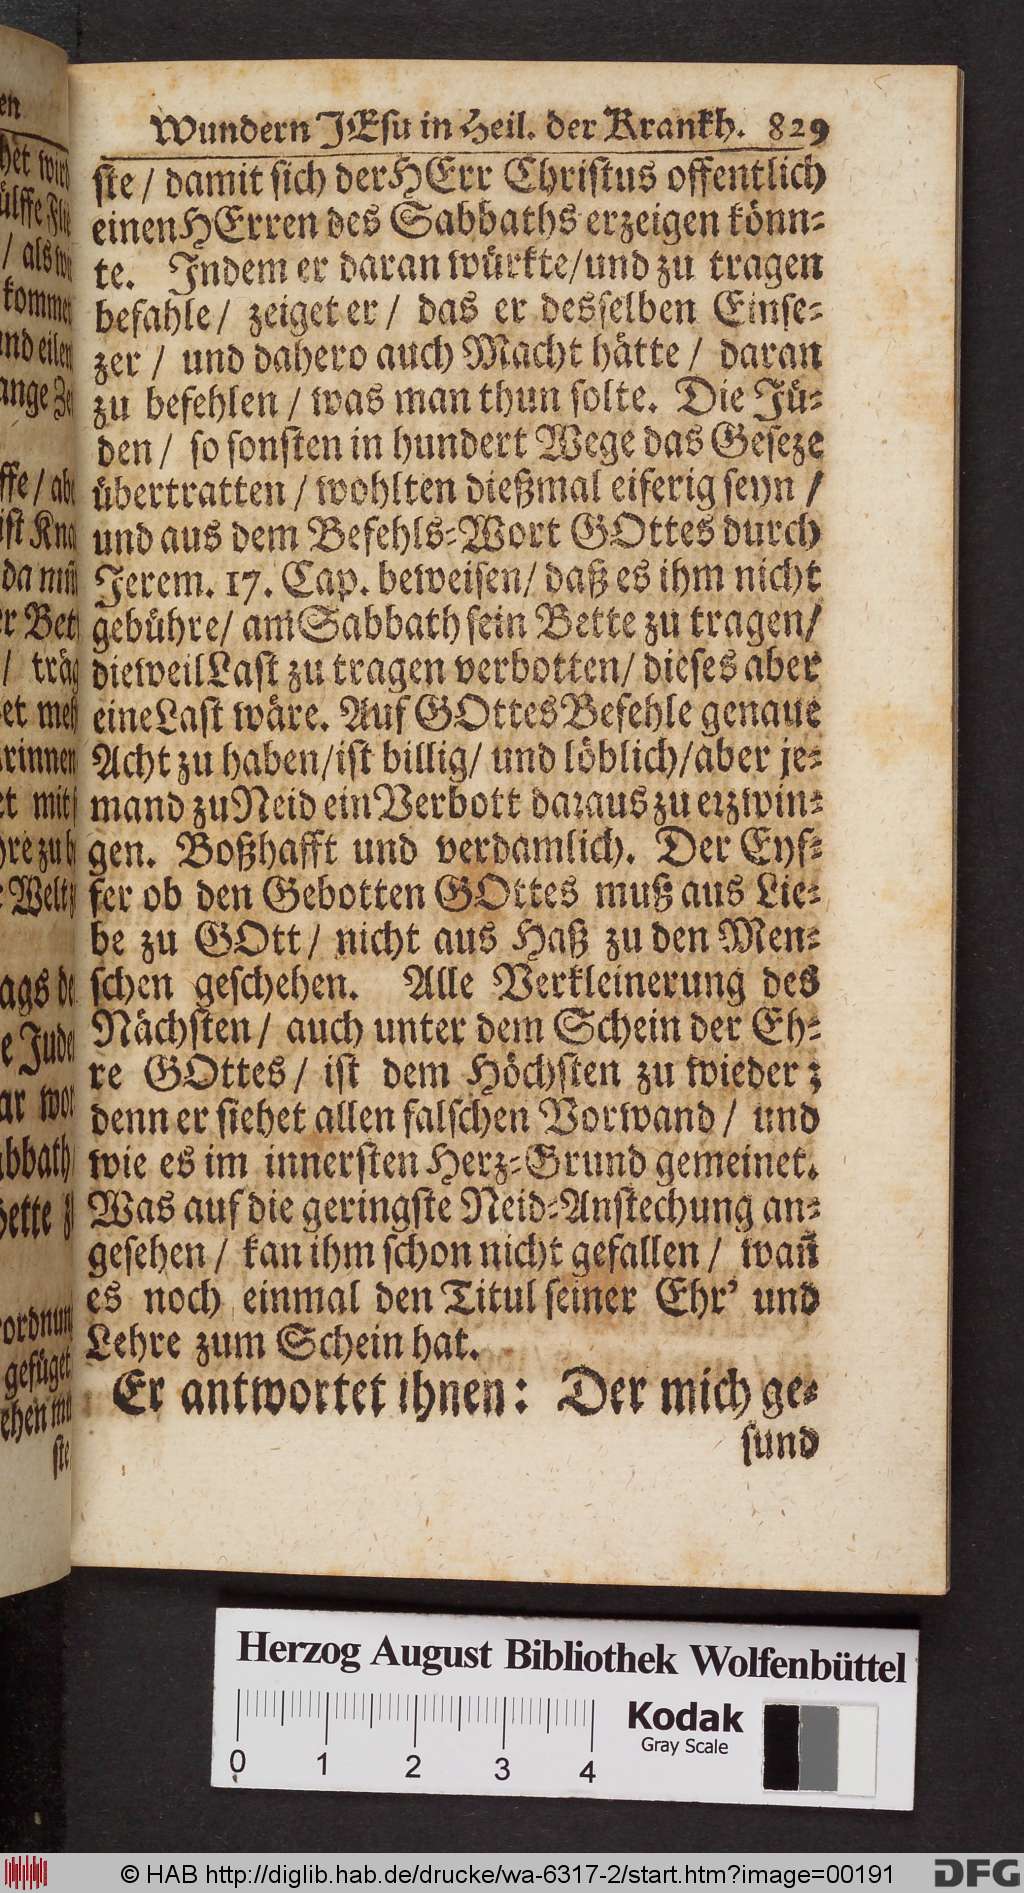 Wundern JEsu in Heil. der Krankh. 829
ste / damit sich der HErr Christus offentlich
einen HErren des Sabbaths erzeigen könn-
te. Indem er daran würkte / und zu tragen
befahle / zeiget er / das er desselben Einse-
zer / und dahero auch Macht hätte / daran
zu befehlen / was man thun solte. Die Jü-
den / so sonsten in hundert Wege das Geseze
übertratten / wohlten dießmal eiferig seyn /
und aus dem Befehls-Wort GOttes durch
Jerem. 17. Cap. beweisen / daß es ihm nicht
gebühre / am Sabbath sein Bette zu tragen /
dieweil Last zu tragen verbotten / dieses aber
eine Last wäre. Auf GOttes Befehle genaue
Acht zu haben / ist billig / und löblich / aber je-
mand zu Neid ein Verbott daraus zu erzwin-
gen. Boßhafft und verdamlich. Der Eyf-
fer ob den Gebotten GOttes muß aus Lie-
be zu GOtt / nicht aus Haß zu den Men-
schen geschehen. Alle Verkleinerung des
Nächsten / auch unter dem Schein der Eh-
re GOttes / ist dem Höchsten zu wieder;
denn er siehet allen falschen Vorwand / und
wie es im innersten Herz-Grund gemeinet.
Was auf die geringste Neid-Anstechung an-
gesehen / kan ihm schon nicht gefallen / wan̄
es noch einmal den Titul seiner Ehr' und
Lehre zum Schein hat.
Er antwortet ihnen: Der mich ge-
sund
Herzog August Bibliothek Wolfenbüttel
0 1 2 3 4
Kodak
Gray Scale
© HAB http://diglib.hab.de/drucke/wa-6317-2/start.htm?image=00191
DFG